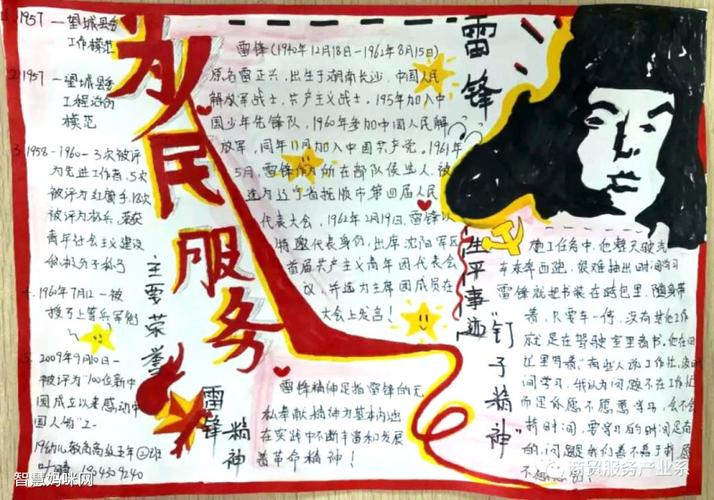 为人民服务
雷锋
1957—望城县委
工作模范
2.1957—望城县委
工程治沩
模范
3.1958-1960-3次被评
为先进工作者,5次
被评为红旗手,18次
被评为标兵,荣获
青年社会主义建设
积极分子称号
4.1960年7月12—被
5.2009年9月10日—
被评为"100位新中
国成立以来感动中
国人物"之一
主要荣誉
雷锋(1940年12月18日—1962年8月15日)
原名雷正兴,出生于湖南长沙,中国人民
解放军战士,共产主义战士。195年加入中
国少年先锋队,1960年参加中国人民解
放军,同年11月加入中国共产党。1961年
5月,雷锋作为所在部队候选人,被
选为辽宁省抚顺市第四届人民
代表大会,1962年2月19日,雷锋以
特邀代表身份,出席沈阳军区
首届共产主义青年团代表会
议,并选为主席团成员在
大会上发言!
生平事迹
雷锋精神
雷锋精神是指雷锋的无
私奉献精神为基本内涵
在实践中不断丰富和发展
着革命精神!
"钉子精神"
施工任务中,他整天驶汽
车东奔西跑,很难抽出时间学习
雷锋就把书装在挎包里,随身带
着,只要车一停,没有其他工作
就坐在驾驶室里看书。他在日
记里写着:"有些人说工作忙,没时
间学习,我认为问题不在工作忙
而是你愿不愿意学习,会不会
挤时间,要学习的时间是有
的,问题我们善不善于挤,愿
不愿意钻
智慧妈咪网
商贸服务产业系